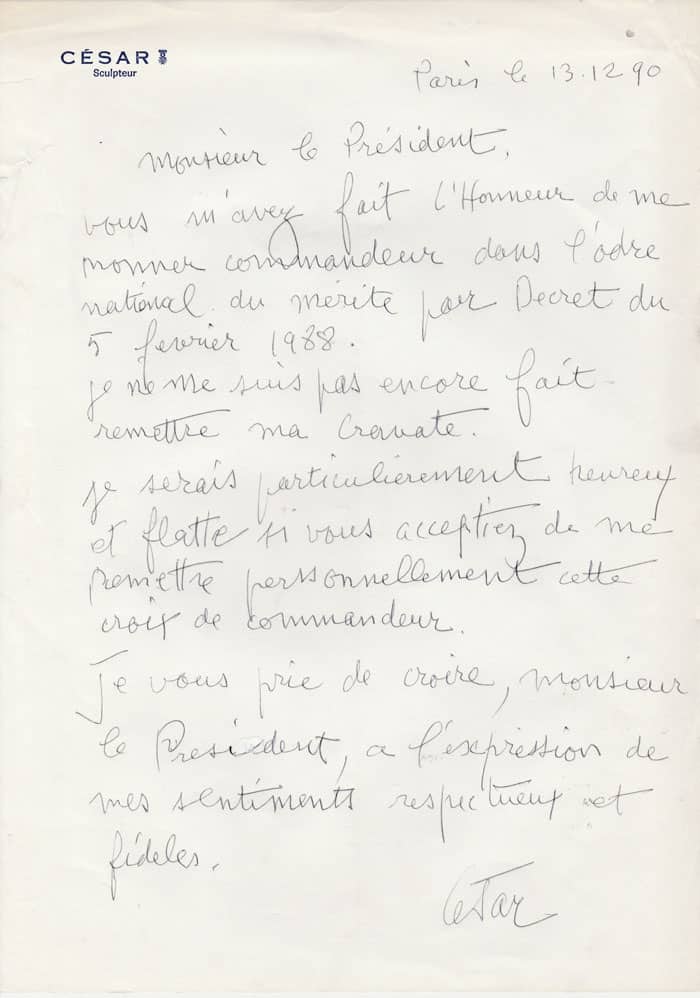 CÉSAR
Sculpteur
Paris le 13.12 90
Monsieur le Président,
vous m'avez fait l'Honneur de me
nommer commandeur dans l'odre
national du mérite par Decret du
5 fevrier 1988.
je ne me suis pas encore fait
remettre ma cravate.
je serais particulièrement heureux
et flatte si vous acceptiez de me
remettre personnellement cette
croix de commandeur.
Je vous prie de croire, monsieur
le President, a l'expression de
mes sentiments respectueux et
fideles.
Cesar